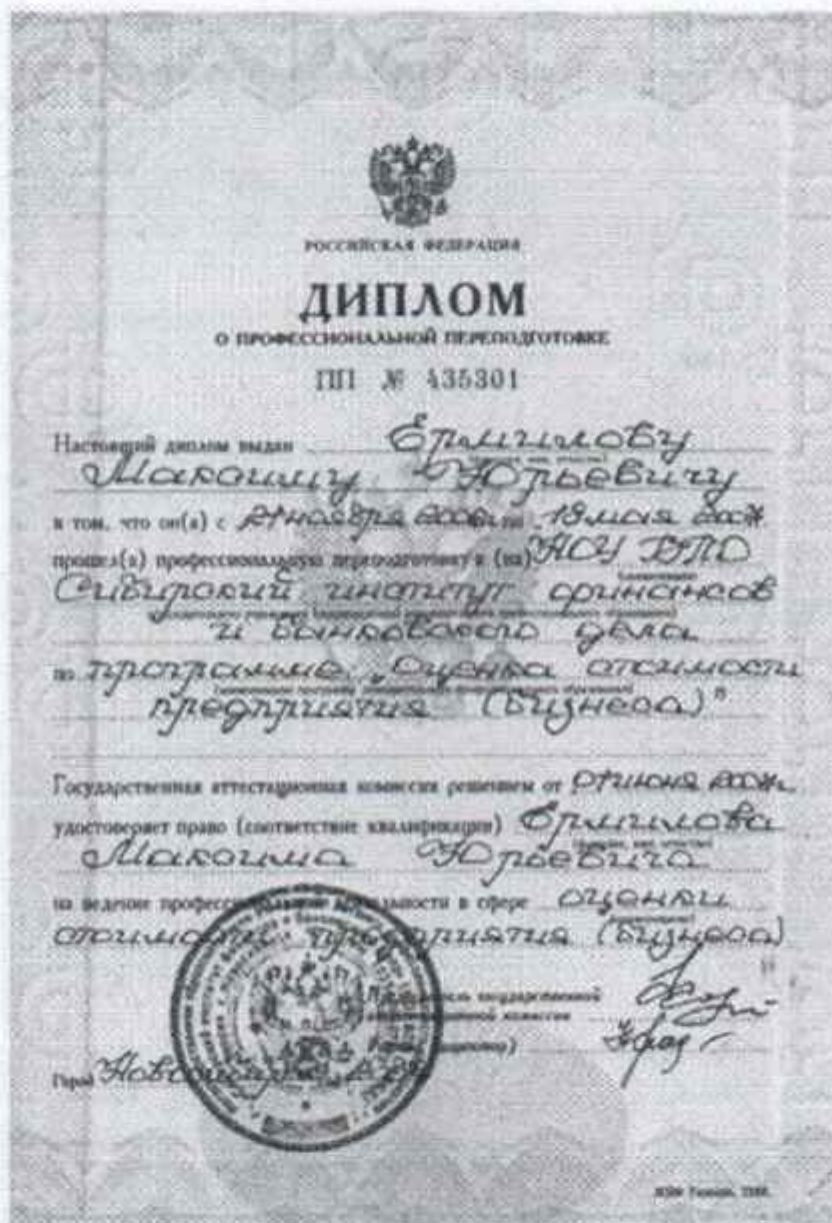 РОССИЙСКАЯ ФЕДЕРАЦИЯ
ДИПЛОМ
О ПРОФЕССИОНАЛЬНОЙ ПЕРЕПОДГОТОВКЕ
ПП № 435301
Настоящий диплом выдан Ермилову
Максиму Юрьевичу
в том, что он(а) с 21 ноября по 18 мая
прошел(а) профессиональную переподготовку в (на) НОУ ВПО
Сибирский институт финансов
и банковского дела
по программе „Оценка стоимости
предприятия (бизнеса)"
Государственная аттестационная комиссия решением от 01 июня
удостоверяет право (соответствие квалификации) Ермилова
Максима Юрьевича
на ведение профессиональной деятельности в сфере оценки
стоимости предприятия (бизнеса)
Председатель государственной
аттестационной комиссии
Город